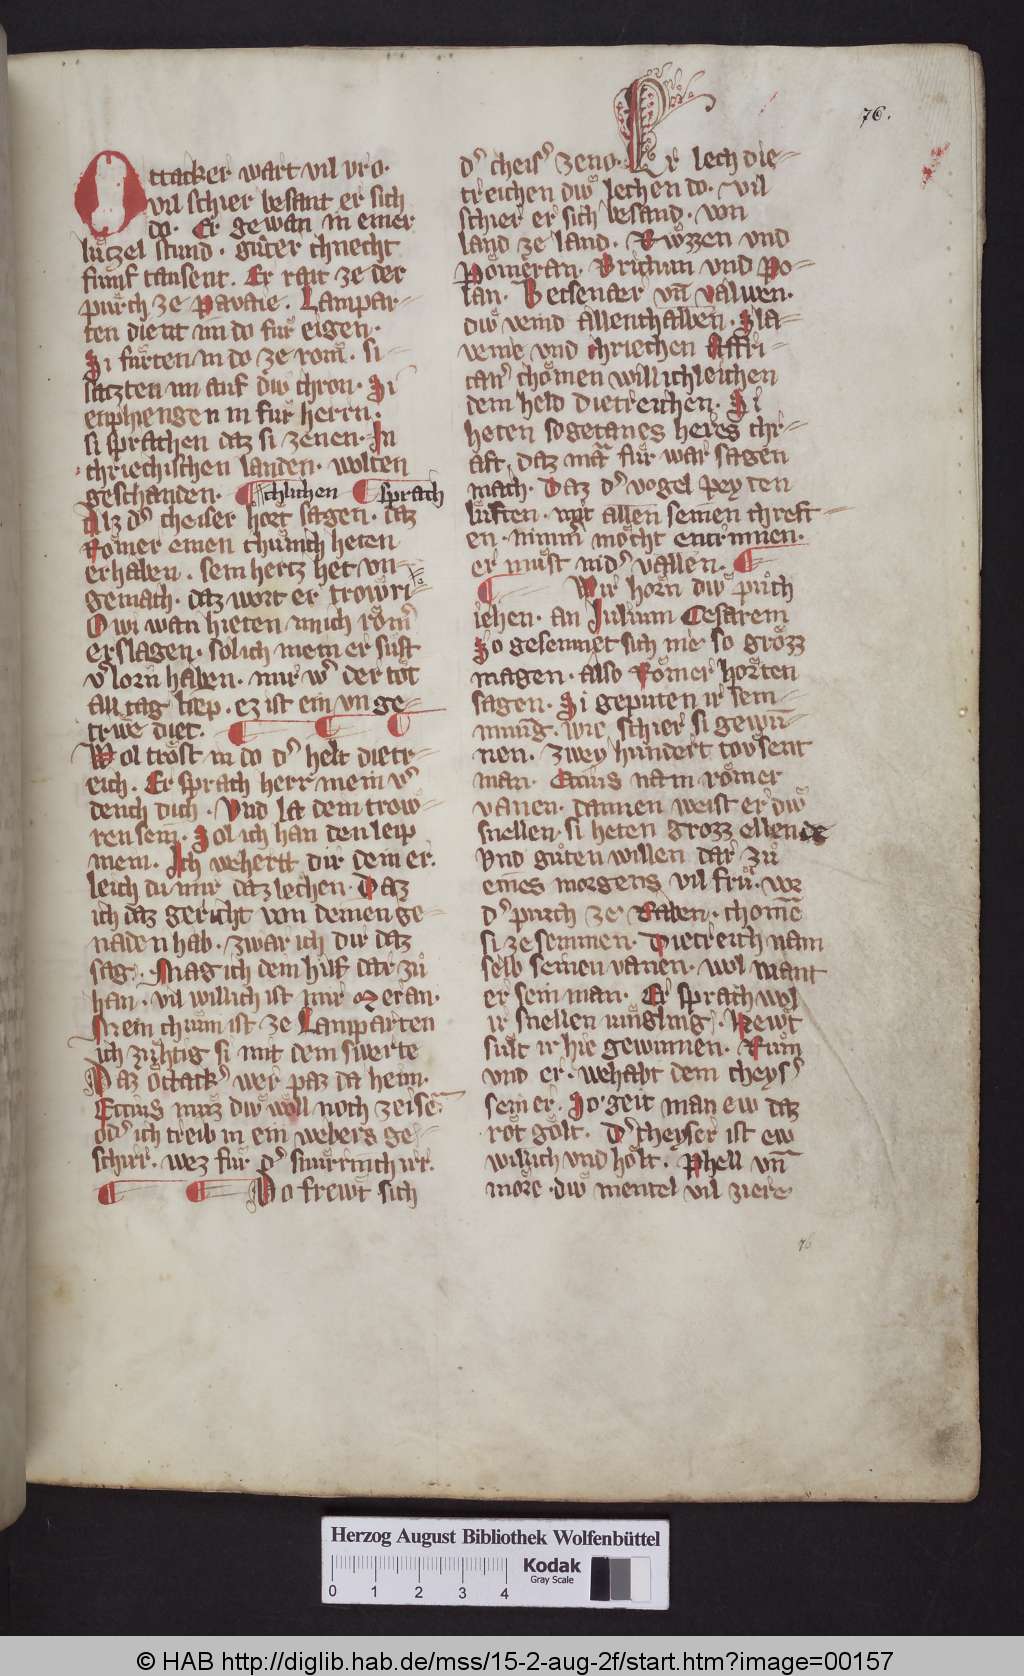 76.
Ottacker wart vil vro.
vil schier besant er sich
do. Er gewan in einer
lützel stund. gůter chnecht
fumf tausent. Er rait ze der
pürch ze Pavaie. Lampar-
ten dient im do für eigen.
Si fürten in do ze rom. si
satzten im auf diw chron. Si
enphiengen in für herrn.
si sprachen daz si zenen. In
chriechischen landen. wolten
geschanden. schlichen sprach
Alz dˢ cheiser hort sagen. daz
Römer einen chünich heten
erhaben. sein hertz het vn-
gemach. daz wort er trowri-
O wi wan hieten mich römˢ
erslagen. solich mein er sust
vˢlorn haben. mir wˢ der tot
all tag liep. ez ist ein vn ge-
triwe diet.
Wol trost in do dˢ helt dietr-
eich. Er sprach herr mein vˢ
dench dich. Vnd la dein trow-
ren sein. Sol ich han den leip
mein. Ich wehertt dir dein er.
leich du mir daz lechen. Daz
ich daz gericht von deinen ge-
naden hab. zwar ich dir daz
sag. Mag ich dem hilf dar zů
han. vil willich ist mir Meran.
Mein chum ist ze Lamparten
ich züchtig si mit dem swerte
Daz ottackˢ wer paz da heim.
Eccius můz diw woll noch zeisē
odˢ ich treib in ein webers ge-
schirr. wez für dˢ smürrinch irr.
Do frewt sich
dˢ cheisˢ zeno. Er lech die-
treichen diw lechen do. Vil
schier er sich besand. von
land ze land. Rüzzen vnd
Pomeran. Prichun vnd Po-
lan. Petsenær vn̄ valwen.
diw veind allenthalben. Sla-
venie vnd chriechen Affri-
canˢ chomen willichleichen
dem held dietreichen. Si
heten sogetanes heres chr-
aft. daz mā für war sagen
mach. Daz dˢ vogel pey ten
lüften. mit allen seinen chreft-
en. nimmˢ möcht entrinnen.
er müst nidˢ vallen.
Wir horn diw půch
iehen. an Julium Cesarem
So gesemnet sich nie so grozz
magen. also Römer horten
sagen. Si geputen ir sem-
nung. wie schier si gewn-
nen. zwey hundert tovsent
man. Eccius nam römer
vanen. dannen weist er diw
snellen. si heten grozz ellende
Vnd gůten willen dar zů
eines morgens vil frů. vor
dˢ purch ze Raben. chomē
si zesemmen. Dietreich nam
selb seinen vanen. wol mant
er sein man. Er sprach wol
ir snellen iungling. Hewt
sült ir hie gewinnen. Rum
vnd er. wehabt dem cheysˢ
sein er. So geit man ew daz
rot golt. Dˢ cheyser ist ew
willich vnd holt. Phell vn̄
more. diw mentel vil ziere.
76
Herzog August Bibliothek Wolfenbüttel
0 1 2 3 4
Kodak
Gray Scale
© HAB http://diglib.hab.de/mss/15-2-aug-2f/start.htm?image=00157